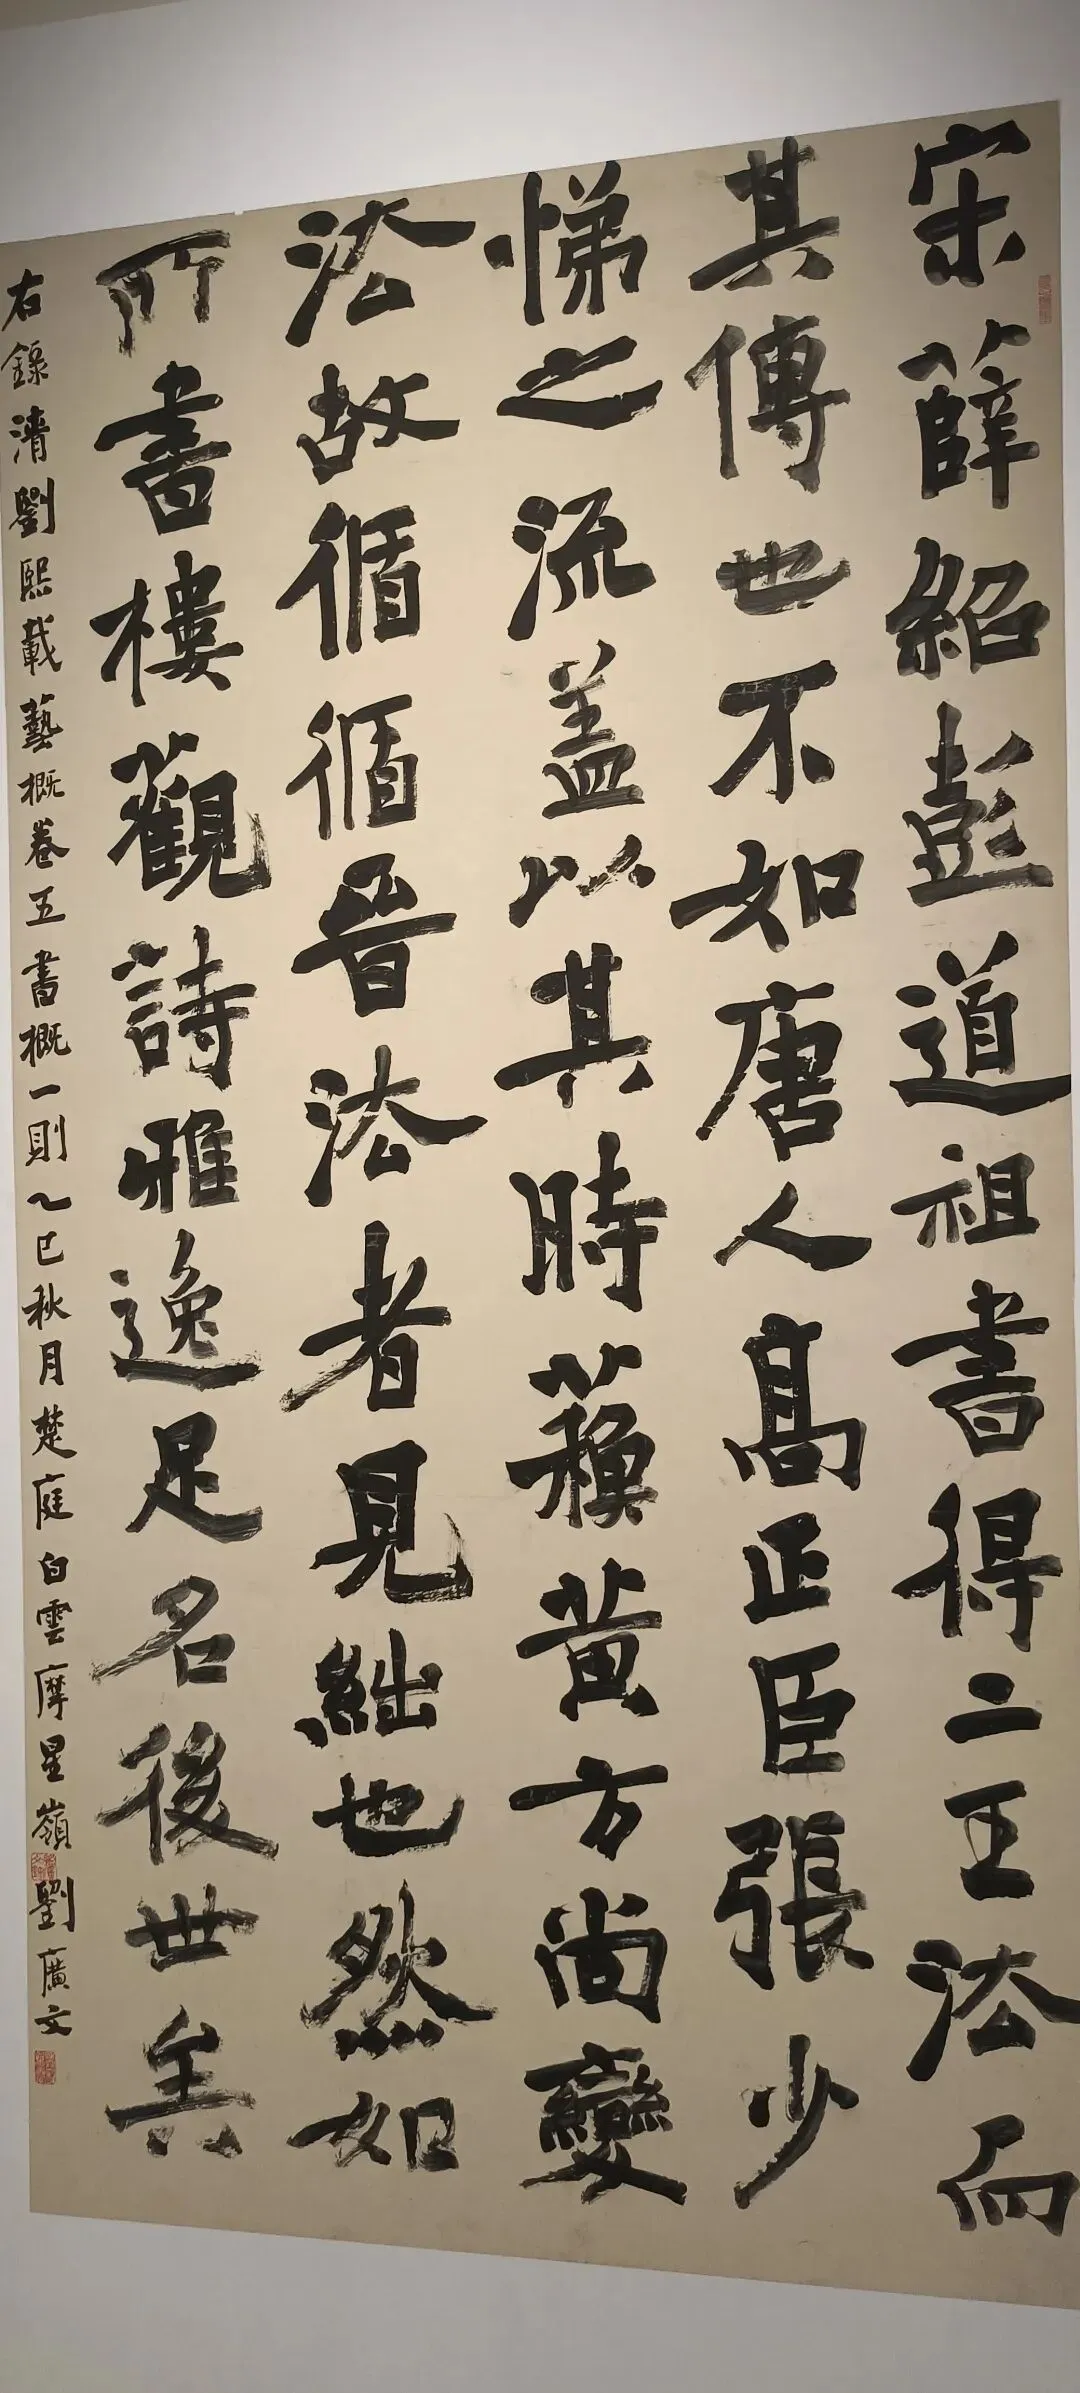 宋薛紹彭道祖書得二王法而
其傳也不如唐人高正臣張少
悌之流蓋以其時蘇黃方尚變
法故循循晉法者見絀也然如
所書樓觀詩雅逸足名後世矣
右錄清劉熙載藝概卷五書概一則乙巳秋月楚庭白雲摩星嶺劉廣文